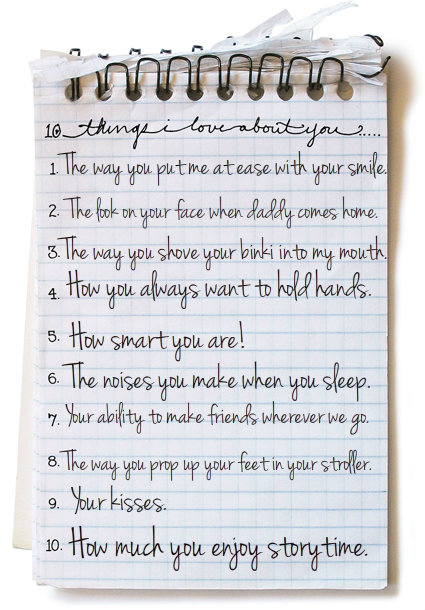 10 things i love about you.....
1. The way you put me at ease with your smile.
2. The look on your face when daddy comes home.
3. The way you shove your binki into my mouth.
4. How you always want to hold hands.
5. How smart you are!
6. The noises you make when you sleep.
7. Your ability to make friends wherever we go.
8. The way you prop up your feet in your stroller.
9. Your kisses.
10. How much you enjoy storytime.